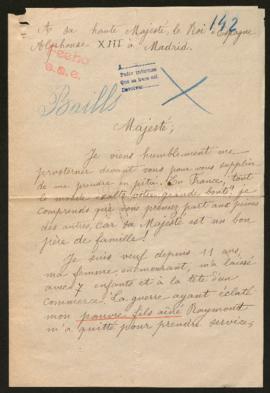 A sa haute Majesté le Roi d'Espagne
142
Alphonse XIII à Madrid.
Pecho
e.s.e.
A
Pedir informes
Devolver
Baills
Majesté;
Je viens humblement me
prosterner devant vous pour vous supplier
de me prendre en pitié. En France, tout
le monde exalte votre bonté, je
comprends que vous prenez part aux peines
des autres, car sa Majesté est un bon
père de famille!
Je suis veuf depuis 11 ans,
ma femme, en mourant, m'a laissé
avec 7 enfants et à la tête d'un
commerce. La guerre ayant éclaté
mon pauvre fils aîné Raymont
m'a quitté pour prendre service,